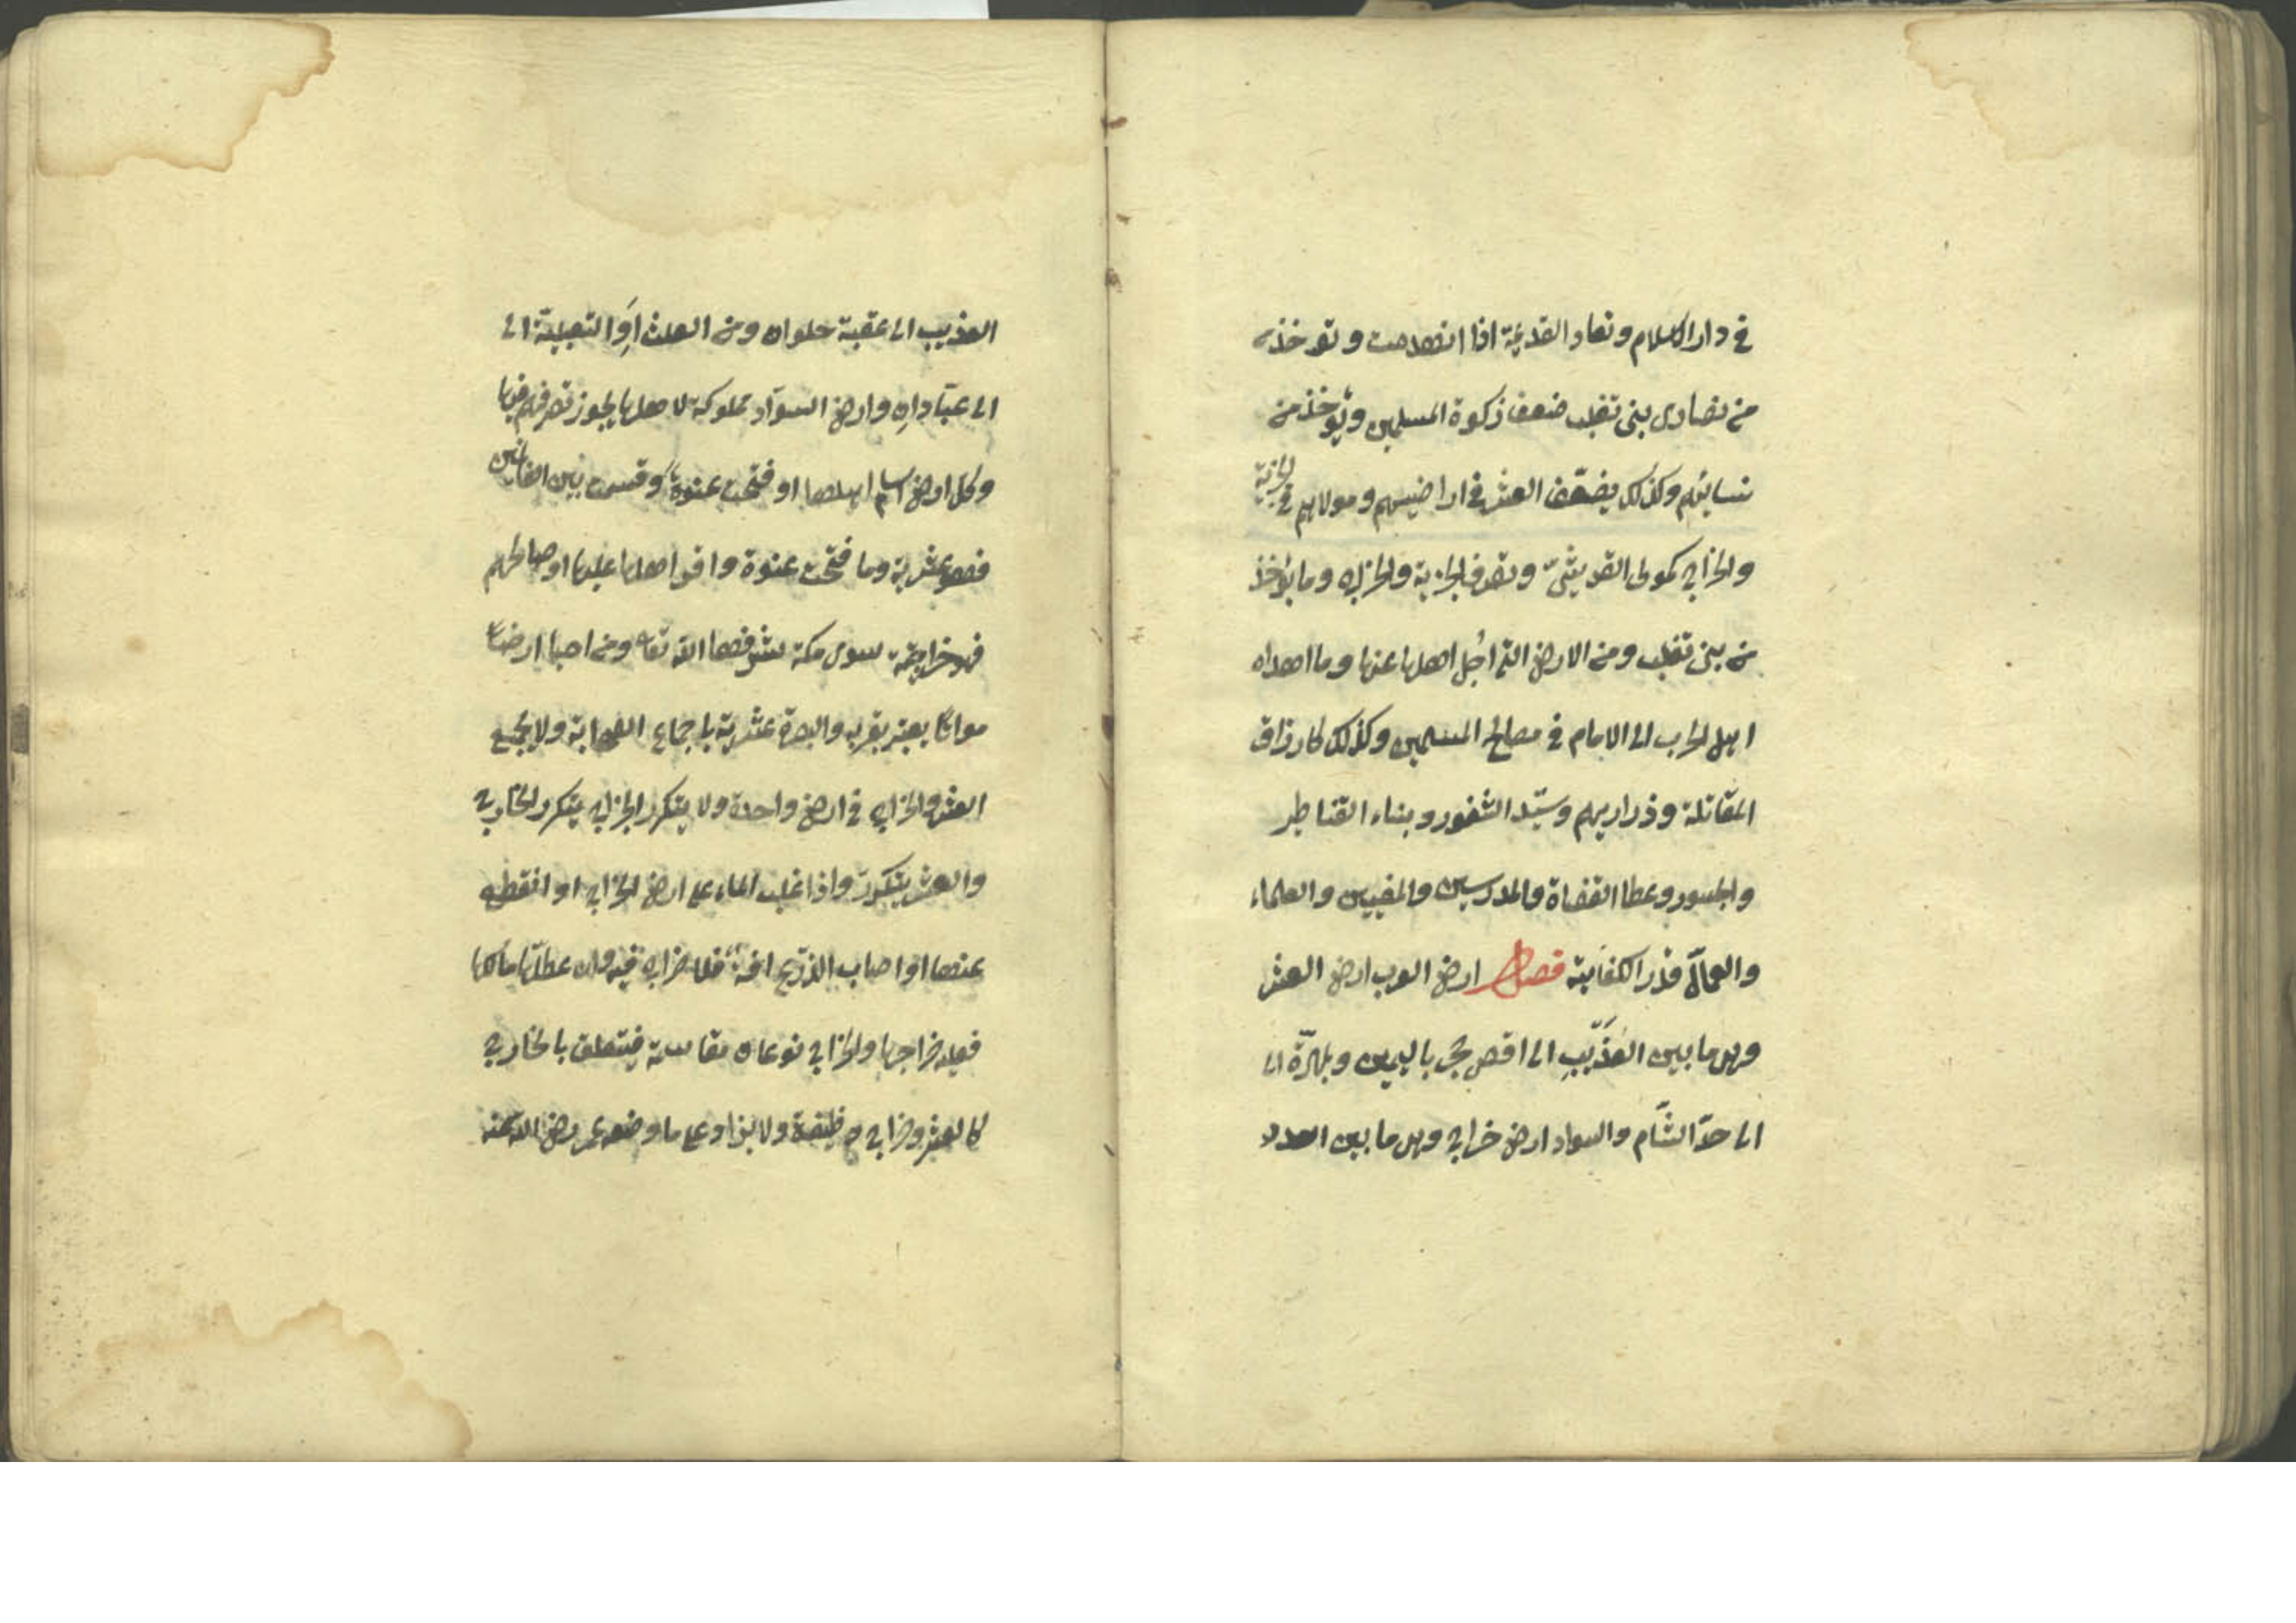 في دار الاسلام وتعاد القديمة اذا انهدمت وتوخذ
من نصارى بنى تغلب ضعف زكوة المسلمين ويؤخذ من
نسايهم وكذلك يضعّف العشر في اراضيهم ومولاهم في الجزية
والخراج كمولى القريشيّ وتصرف الجزية والخراج وما يؤخذ
من بنى تغلب ومن الارض التي اجل اهلها عنها وما اهداه
اهل الحرب الى الامام في مصالح المسلمين وكذلك كارزاق
المقاتلة وذراريهم وسدّ الثغور وبناء القناطر
والجسور وعطا القضاة والمدرسين والمفتيين والعلماء
والعمال قدر الكفايته فصل ارض العرب ارض العشر
وهى ما بين العذيب الى اقصى حجر باليمين وبمهرة الى
الى حدّ الشّام والسواد ارض خراج وهى ما بين
العذيب الى عقبة حلوان ومن العلث او الثعيلبة الى
الى عبّادان وارض السواد مملوكة لاهلها يجوز تصرفهم فيها
وكل ارض اسلم اهلها او فتحت عنوة وقسمت بين الغانمين
فهو عشرية وما فتحت عنوة واقر اهلها عليها او صالحهم
فهو خراجية سوى مكة شرفها الله تعا ومن احيا ارضا
مواتا يعتبر بقربه والبصرة عشرية باجماع الصحابة ولا يجمع
العشر والخراج في ارض واحدة ولا يتكرر الخراج يتكرر الخارج
والعشر يتكرر واذا غلب الماء على ارض الخراج او انقطع
عنها او اصاب الذرع افة فلا خراج فيه وان عطلها مالكها
فعليه خراجها والخراج نوعان مقاسمة فيتعلق بالخارج
كالعشر وخراج وظيفة ولا يزاد على ما وضعه عمر رضى الله عنه